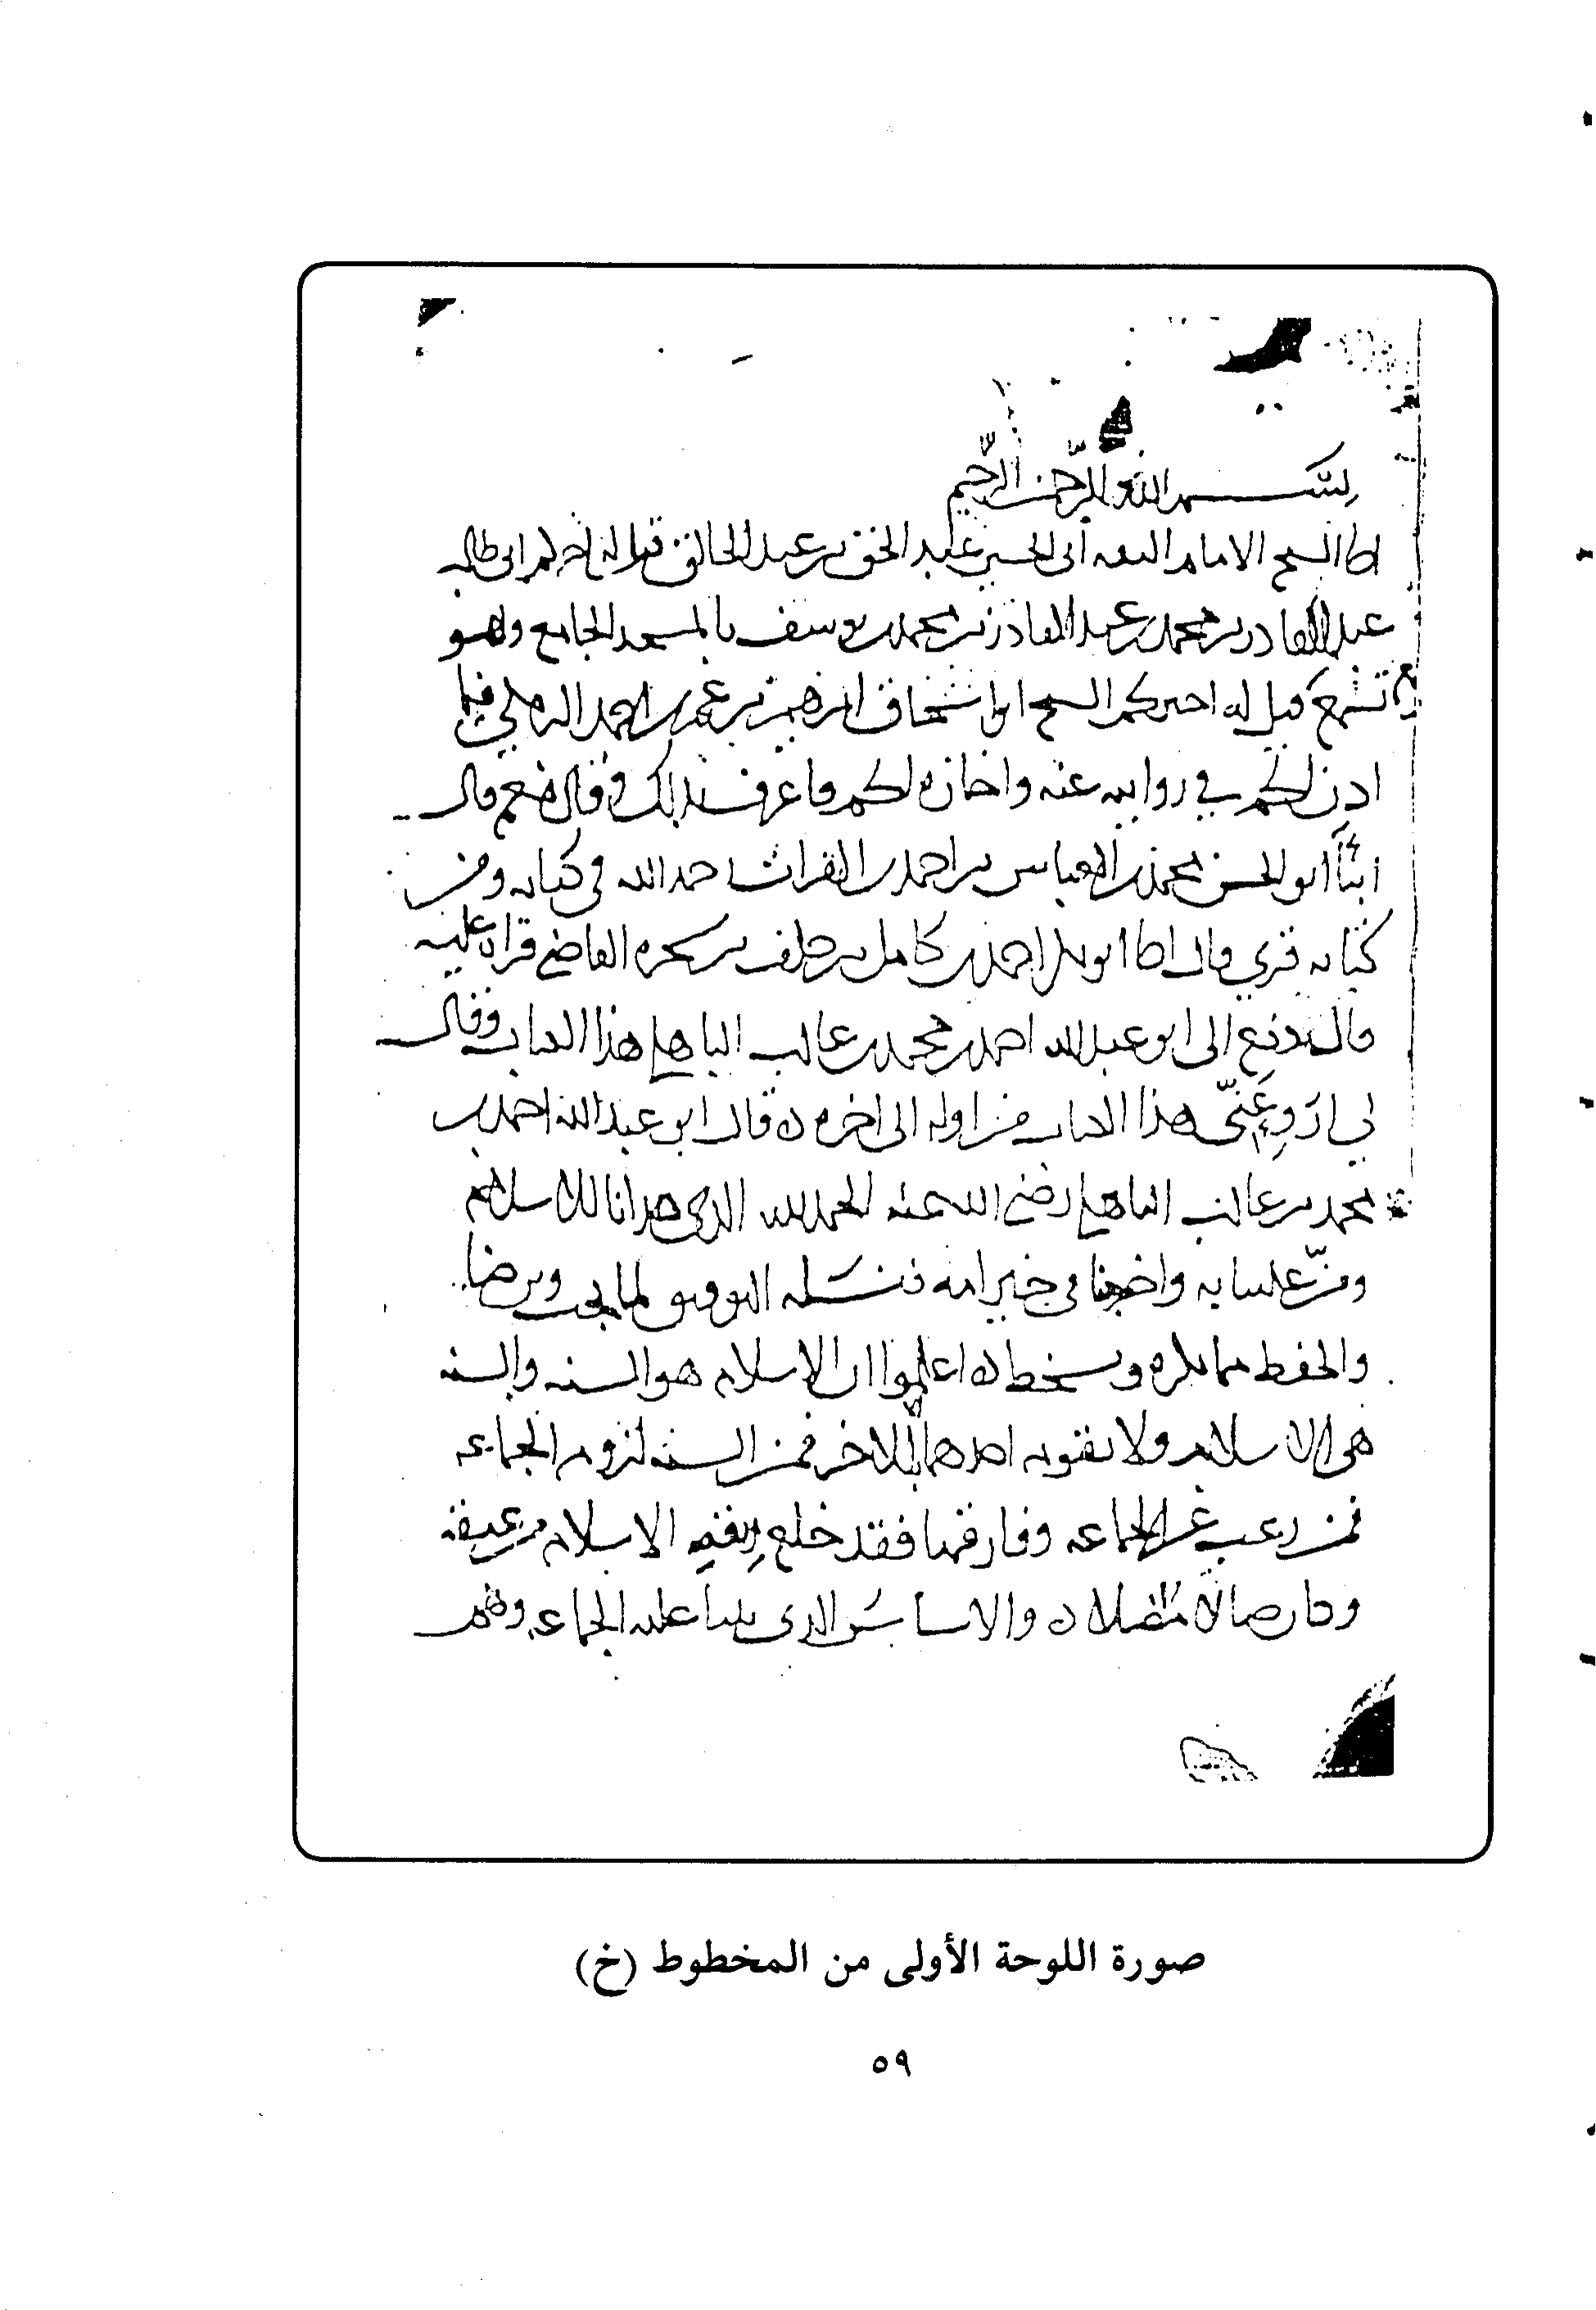 بسم الله الرحمن الرحيم
الامام ابى الحسين عبد الحق بن عبد الخالق قيل له اخبركم ابى طالب
عبد القادر بن محمد بن عبد القادر بن محمد بن يوسف بالمسجد الجامع وهو
تسمع قيل له اخبركم الشيخ ابو اسحاق ابرهيم بن عمر بن احمد البرمكي فيما
اذن لكم في روايته عنه واجازه لكم فاعرف بذلك وقال نعم قال
انبأ ابو الحسن محمد بن العباس بن احمد بن الفرات رحمه الله في كتابه ومن
كتابه قرى قال ابو بكر احمد بن كامل بن خلف بن شجره القاضي قراة عليه
قال دفع الى ابو عبد الله احمد بن محمد بن غالب الباهلي هذا الكتاب وقال
لي ارو عني هذا الكتاب من اوله الى اخره قال ابو عبد الله احمد بن
محمد بن غالب الباهلي رضي الله عنه الحمد لله الذي هدانا للاسلام
ومن علينا به واخرجنا في خير امه فنسله التوفيق لما يحب ويرضا
والحفظ مما يكره ويسخط اعلموا ان الاسلام هو السنه والسنه
هي الاسلام ولا يقوم احدهما الا بالاخر فمن السنه لزوم الجماعه
فمن رغب غير الجماعه وفارقها فقد خلع ربقه الاسلام من عنقه
وكان ضالا مضلا والاساس الذي بينا عليه الجماعه وهم
صورة اللوحة الأولى من المخطوط (خ)
٥٩